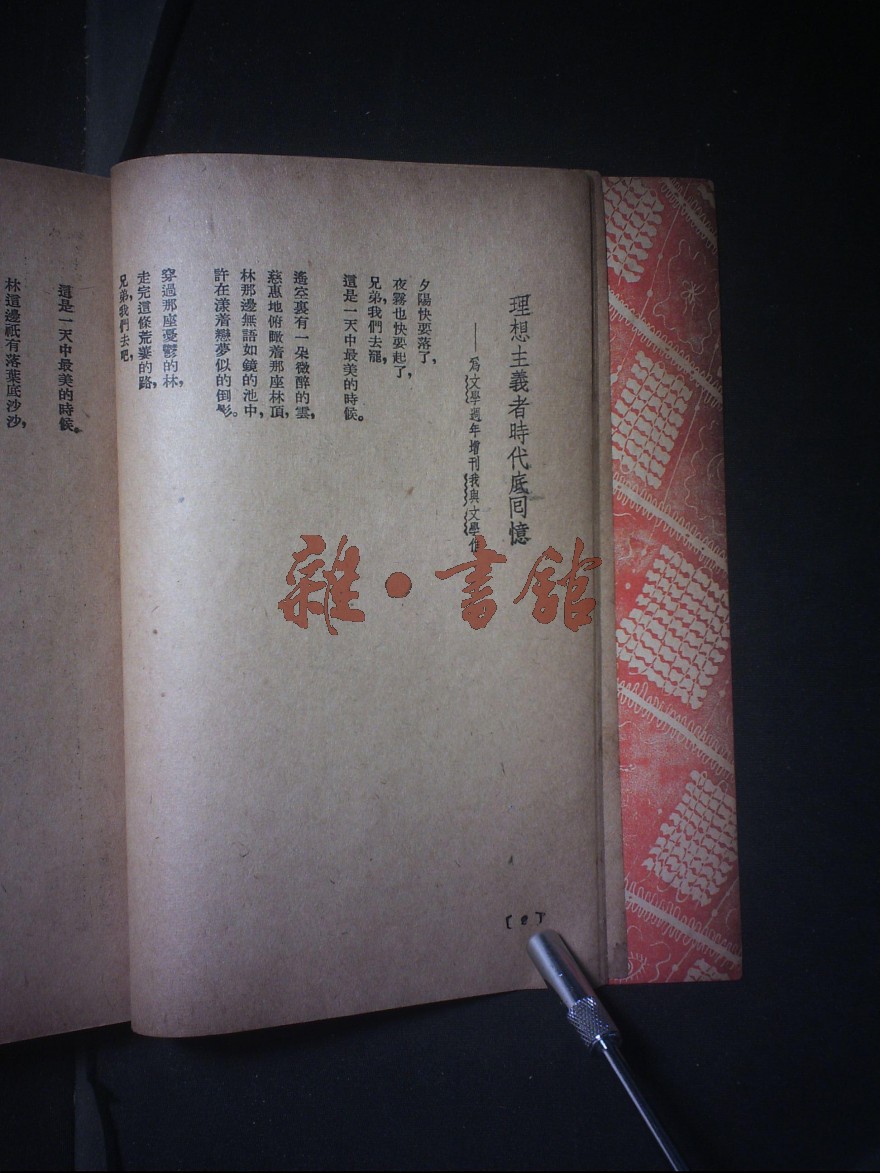 理想主義者時代底回憶
——爲文學週年增刊我與文學作
夕陽快要落了，
夜霧也快要起了，
兄弟，我們去罷，
這是一天中最美的時候。
遙空裏有一朵微醉的雲，
慈惠地俯瞰着那座林頂，
林那邊無語如鏡的池中，
許在漾着戀夢似的倒影。
穿過那座憂鬱的林，
走完這條荒蕪的路，
兄弟，我們去吧，
這是一天中最美的時候。
林這邊祇有落葉底沙沙，
雜·書館